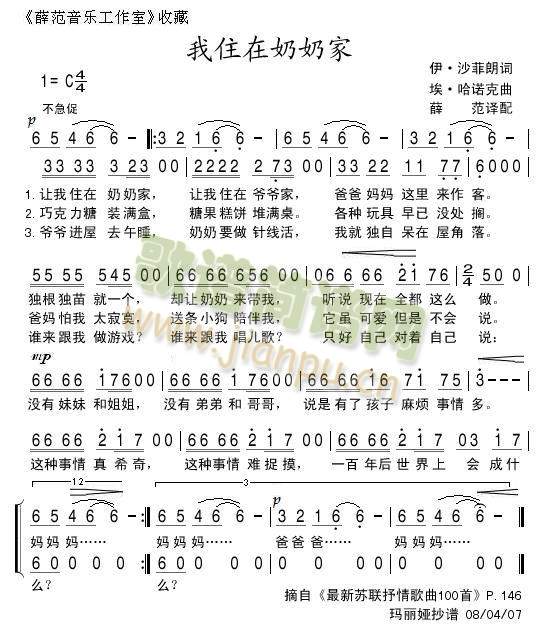 《薛范音乐工作室》收藏
我住在奶奶家
1= C 4/4
伊·沙菲朗词
埃·哈诺克曲
薛 范译配
不急促
p
6 5 4 6 6 - :3 2 1 6 6 - 6 5 4 6 6 - 3 2 1 6 6 -
33 33 3 23 00 2222 2 73 00 33 22 11 77 6000
1. 让我住在 奶奶家， 让我住在 爷爷家， 爸爸 妈妈 这里 来作 客。
2. 巧克力糖 装满盒， 糖果糕饼 堆满桌。 各种 玩具 早已 没处 搁。
3. 爷爷进屋 去午睡， 奶奶要做 针线活， 我就 独自 呆在 屋角 落。
55 55 545 00 66 66 656 00 06 6 66 2i 76 2/4 50 0
独根独苗 就一个， 却让奶奶 来带我， 听说 现在 全都 这么 做。
爸妈怕我 太寂寞， 送条小狗 陪伴我， 它虽 可爱 但是 不会 说。
谁来跟我 做游戏？ 谁来跟我 唱儿歌？ 只好 自己 对着 自己 说：
mp
66 66 66 17600 66 66 66 17600 66 66 16 71 75 3---
没有妹妹 和姐姐， 没有弟弟 和哥哥， 说是有了孩子 麻烦 事情 多。
66 66 217 00 66 66 217 00 66 66 66 217 03 17
这种事情 真希奇， 这种事情 难捉摸， 一百年后世界上 会 成什
12
3
p
6 5 4 6 6 - 6 5 4 6 6 - 3 2 1 6 6 - 6 5 4 6 6 -
妈妈 妈…… 妈妈 妈…… 爸爸 爸…… 妈妈 妈……
6 0 0 0 6 0 0 0 0 0 0 0 0 0 0 0
么？ 么？
摘自《最新苏联抒情歌曲100首》P. 146
玛丽娅抄谱 08/04/07
歌谱简谱网
www.jianpu.cn